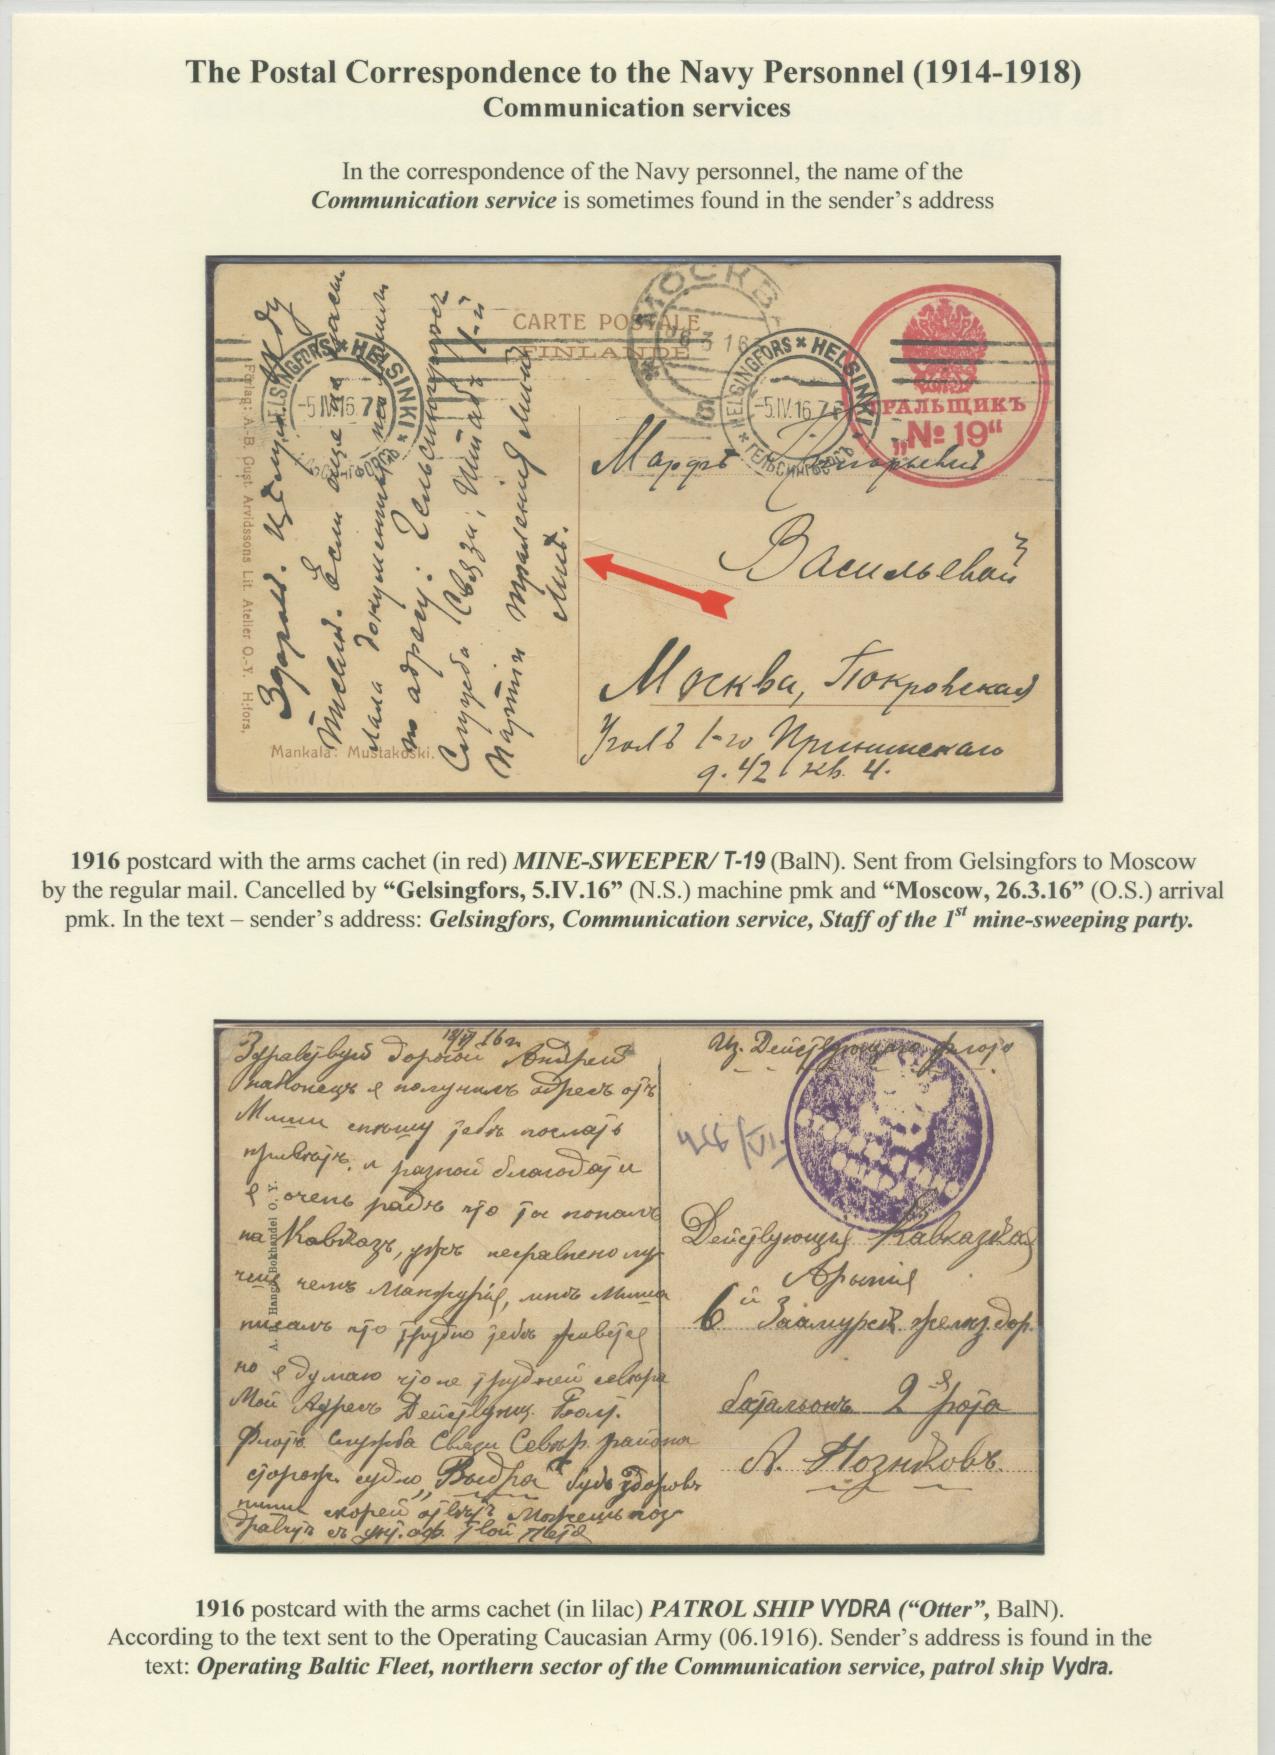 The Postal Correspondence to the Navy Personnel (1914-1918)
Communication services
In the correspondence of the Navy personnel, the name of the
Communication service is sometimes found in the sender's address
CARTE POSTALE
FINLANDE
МОСКВА
26 3 16
HELSINGFORS × HELSINKI
-5.IV.16.7
ГЕЛЬСИНГФОРСЪ
HELSINGFORS × HELSINKI
-5.IV.16.7
ГЕЛЬСИНГФОРСЪ
ТРАЛЬЩИКЪ
„№ 19“
Förlag: A.-B. Gust. Arvidssons Lit. Atelier O.-Y. H:fors,
Mankala: Mustakoski.
Здоровъ. Цѣлую. Жду
писемъ. Если еще не
лала документы
по адресу: Гельсингфорсъ
Служба Связи, Штабъ 1-й
Партіи траленія Минъ
Марфѣ Григорьевнѣ
Васильевой
Москва, Покровская
Уголъ 1-го
д. 42 кв. 4.
1916 postcard with the arms cachet (in red) MINE-SWEEPER/ T-19 (BalN). Sent from Gelsingfors to Moscow
by the regular mail. Cancelled by “Gelsingfors, 5.IV.16” (N.S.) machine pmk and “Moscow, 26.3.16” (O.S.) arrival
pmk. In the text – sender's address: Gelsingfors, Communication service, Staff of the 1st mine-sweeping party.
16 г.
Здравствуй дорогой Андрей
наконецъ я получилъ адресъ отъ
Миши спѣшу тебѣ послать
привѣтъ и разной благодати
я очень радъ что ты попалъ
на Кавказъ, ужъ несравнено лу
чше чемъ Манжурія, мнѣ Миша
писалъ что трудно тебѣ живется
но я думаю что не трудней севера
Мой Адресъ Действующ. Балт.
Флотъ Служба Связи Севѣр. района
сторож. судно „Выдра“ будь здоровъ
пиши скорей отвѣтъ Можешь поз
дравить съ твой Петя
A. B. Hangö Bokhandel O. Y.
Из Действующаго флота
Действующая Кавказская
Армія
6й Заамурск. желѣз. дор.
батальонъ 2-я рота
А. Позняковъ.
1916 postcard with the arms cachet (in lilac) PATROL SHIP VYDRA (“Otter”, BalN).
According to the text sent to the Operating Caucasian Army (06.1916). Sender's address is found in the
text: Operating Baltic Fleet, northern sector of the Communication service, patrol ship Vydra.